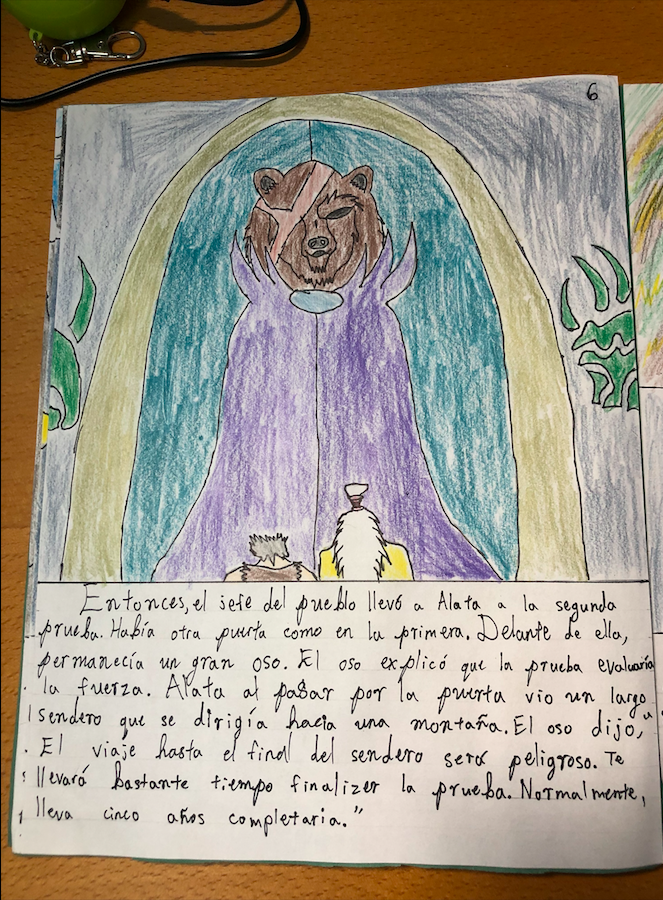 6
Entonces, el jefe del pueblo llevó a Alata a la segunda
prueba. Había otra puerta como en la primera. Delante de ella,
permanecía un gran oso. El oso explicó que la prueba evaluaría
la fuerza. Alata al pasar por la puerta vio un largo
sendero que se dirigía hacia una montaña. El oso dijo, "
El viaje hasta el final del sendero será peligroso. Te
llevará bastante tiempo finalizer la prueba. Normalmente,
lleva cinco años completaria."